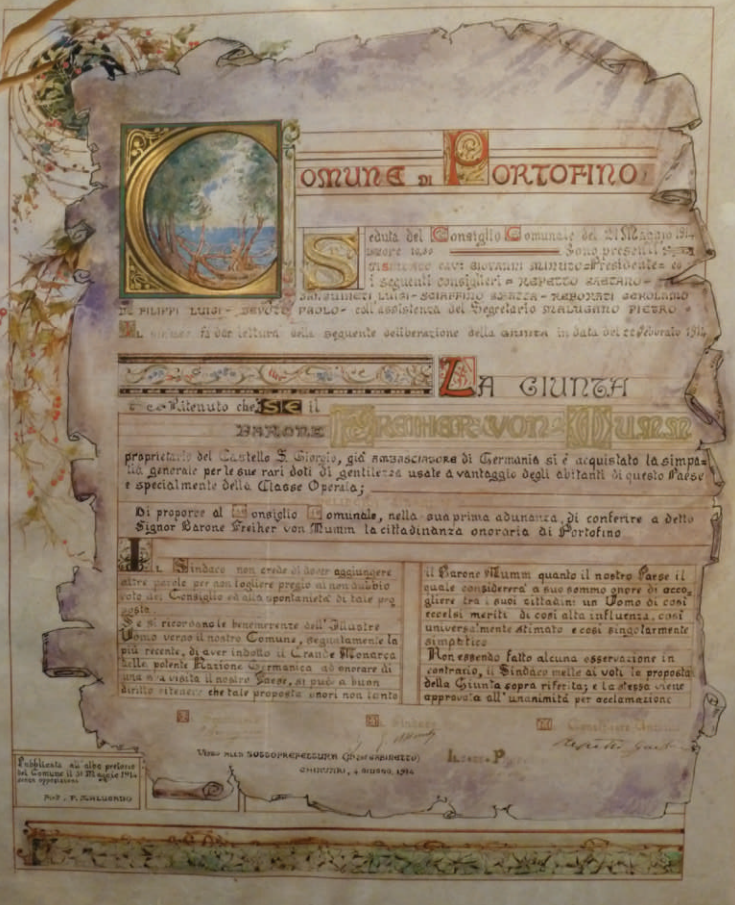 COMUNE DI PORTOFINO
Seduta del Consiglio Comunale del 21 Maggio 1914
ore Sono presenti il
cav. GIOVANNI MINUTO - Presidente - ed
i seguenti consiglieri REPETTO GAETANO -
SANGUINETI LUIGI - SCIAFFINO - GEROLAMO
DE FILIPPI LUIGI - DEVOTO PAOLO - coll'assistenza del Segretario MALUGANO PIETRO
IL fa dar lettura della seguente deliberazione della GIUNTA in data del Febbraio 1914
LA GIUNTA
Ritenuto che SE il
BARONE FREIHER VON MUMM
proprietario del Castello S. Giorgio, già AMBASCIATORE di Germania si è acquistato la simpa-
tia generale per le sue rari doti di gentilezza usate a vantaggio degli abitanti di questo Paese
e specialmente della Classe Operaia;
Di proporre al Consiglio Comunale, nella sua prima adunanza, di conferire a detto
Signor Barone Freiher von Mumm la cittadinanza onoraria di Portofino
IL Sindaco non crede di dover aggiungere
altre parole per non togliere pregio al non dubbio
voto del Consiglio ed alla spontaneità di tale pro
posta.
Se si ricordano le benemerenze dell'Illustre
Uomo verso il nostro Comune, segnatamente la
più recente, di aver indotto il Grande Monarca
della potente Nazione Germanica ad onorare di
una sua visita il nostro Paese, si può a buon
diritto ritenere che tale proposta onori non tanto
il Barone Mumm quanto il nostro Paese il
quale considererà a suo sommo onore di acco-
gliere tra i suoi cittadini un Uomo di così
eccelsi meriti di così alta influenza, così
universalmente stimato e così singolarmente
simpatico
Non essendo fatto alcuna osservazione in
contrario, il Sindaco mette ai voti la proposta
della Giunta sopra riferita; e la stessa viene
approvata all'unanimità per acclamazione
Il Sindaco
Il Consigliere Anziano
Visto alla SOTTOPREFETTURA
CHIAVARI, 4 GIUGNO, 1914
Pubblicata all'albo pretorio
del Comune il Maggio 1914
senza opposizioni
P. MALUGANO